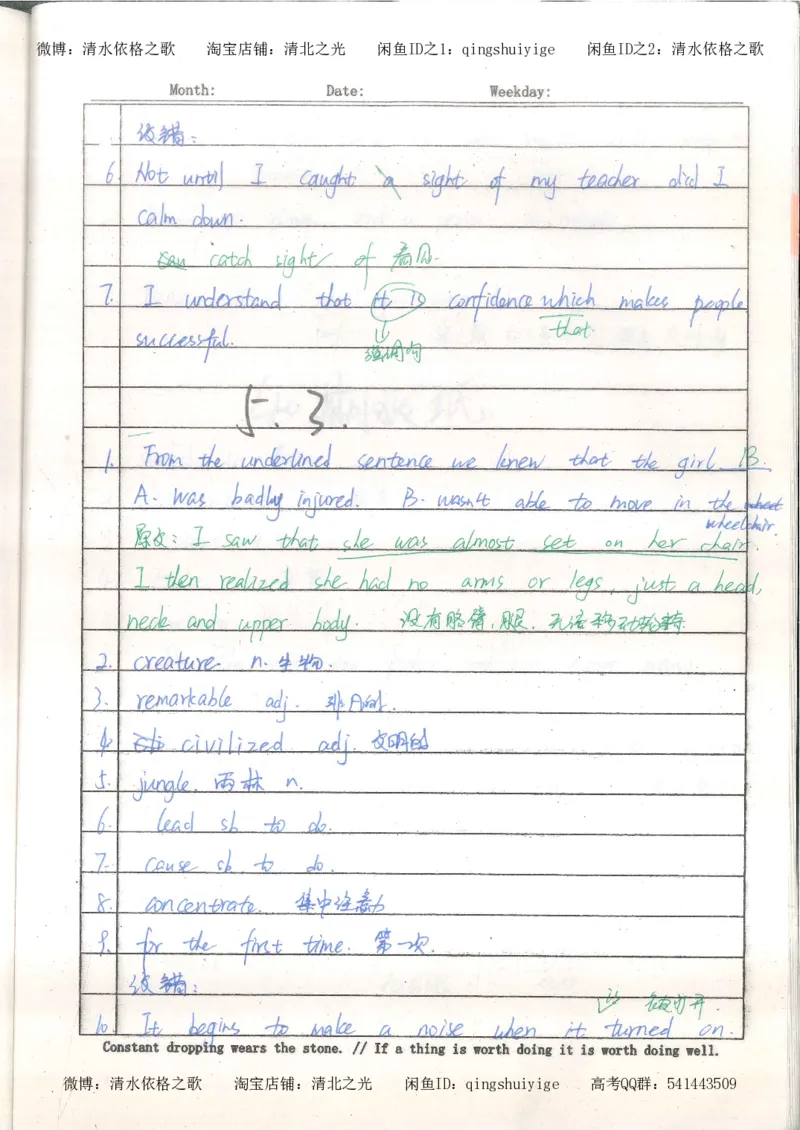 微博：清水依格之歌 淘宝店铺：清北之光 闲鱼ID之1：qingshuiyige 闲鱼ID之2：清水依格之歌
Month: Date: Weekday:
改错：
6. Not until I caught a sight of my teacher did I
calm down.
catch sight of 看见.
7. I understand that it is confidence which makes people
that
successful.
强调句
5.3.
1. From the underlined sentence we knew that the girl B.
A. was badly injured. B. wasn't able to move in the
wheelchair.
原文：I saw that she was almost set on her chair.
I then realized she had no arms or legs, just a head,
neck and upper body. 没有胳膊,腿.无法移动轮椅
2. creature n. 生物.
3. remarkable adj. 非凡的.
4. civilized adj. 文明的
5. jungle. 雨林 n.
6. lead sb to do.
7. cause sb to do.
8. concentrate. 集中注意力
9. for the first time. 第一次.
改错：
被打开.
10. It begins to make a noise when it turned on.
Constant dropping wears the stone. // If a thing is worth doing it is worth doing well.
微博：清水依格之歌 淘宝店铺：清北之光 闲鱼ID：qingshuiyige 高考QQ群：541443509